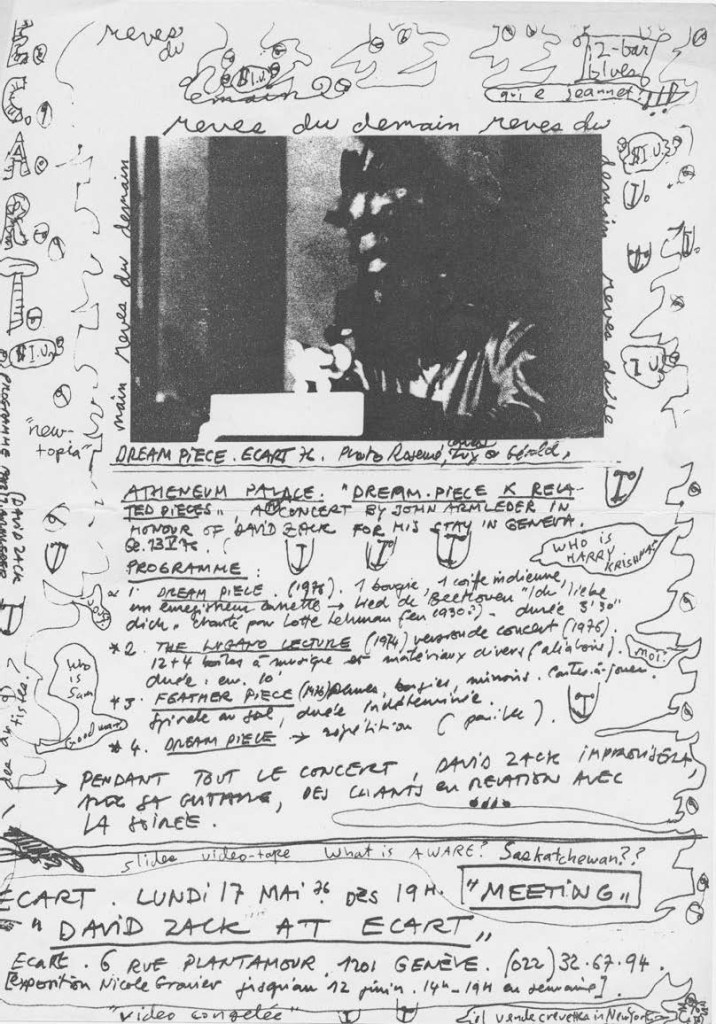 reves
du
demain
S.I.U.
12-bar
blues
qui e jeannet?
!!!
reves du demain reves du
main reves du demain
demain reves du
S.I.U.
S.I.U.
I.U.
"new-
topia"
DREAM PIECE. ECART 76. Photo
ATHENEUM PALACE. "DREAM.PIECE & RELA-
TED PIECES", A CONCERT BY JOHN ARMLEDER IN
HONOUR OF DAVID ZACK FOR HIS STAY IN GENEVA.
Ge. 13 V 76.
WHO IS
HARRY
KRISHNA?
PROGRAMME:
1. DREAM PIECE. (1976). 1 bougie, 1 coiffe indienne,
un enregistreur cassette → Lied de Beethoven "Ich liebe
dich", chanté par Lotte Lehman (en 1930?) - durée 3'30"
*2. THE LUGANO LECTURE (1974) version de concert (1976).
12+4 boîtes à musique et matériaux divers
durée: env. 10'
moi?
*3. FEATHER PIECE (1976) plumes, bougies, miroirs. Cartes-à-jouer.
au sol, durée indéterminée.
*4. DREAM PIECE → répétition
Who
is
Sam
Goodman
→ PENDANT TOUT LE CONCERT, DAVID ZACK IMPROVISERA,
AVEC SA GUITARE, DES CHANTS en RELATION AVEC
LA SOIRÉE.
slides video-tape What is AWARE? Saskatchewan??
ECART. LUNDI 17 MAI 76 DES 19H. "MEETING"
"DAVID ZACK AT ECART"
ECART. 6 RUE PLANTAMOUR, 1201 GENÈVE. (022) 32.67.94.
[Exposition Nicole Gravier jusqu'au 12 juin. 14h-19H en semaine].
"video congelée"
il vende crevettes in New York
DAVID ZACK